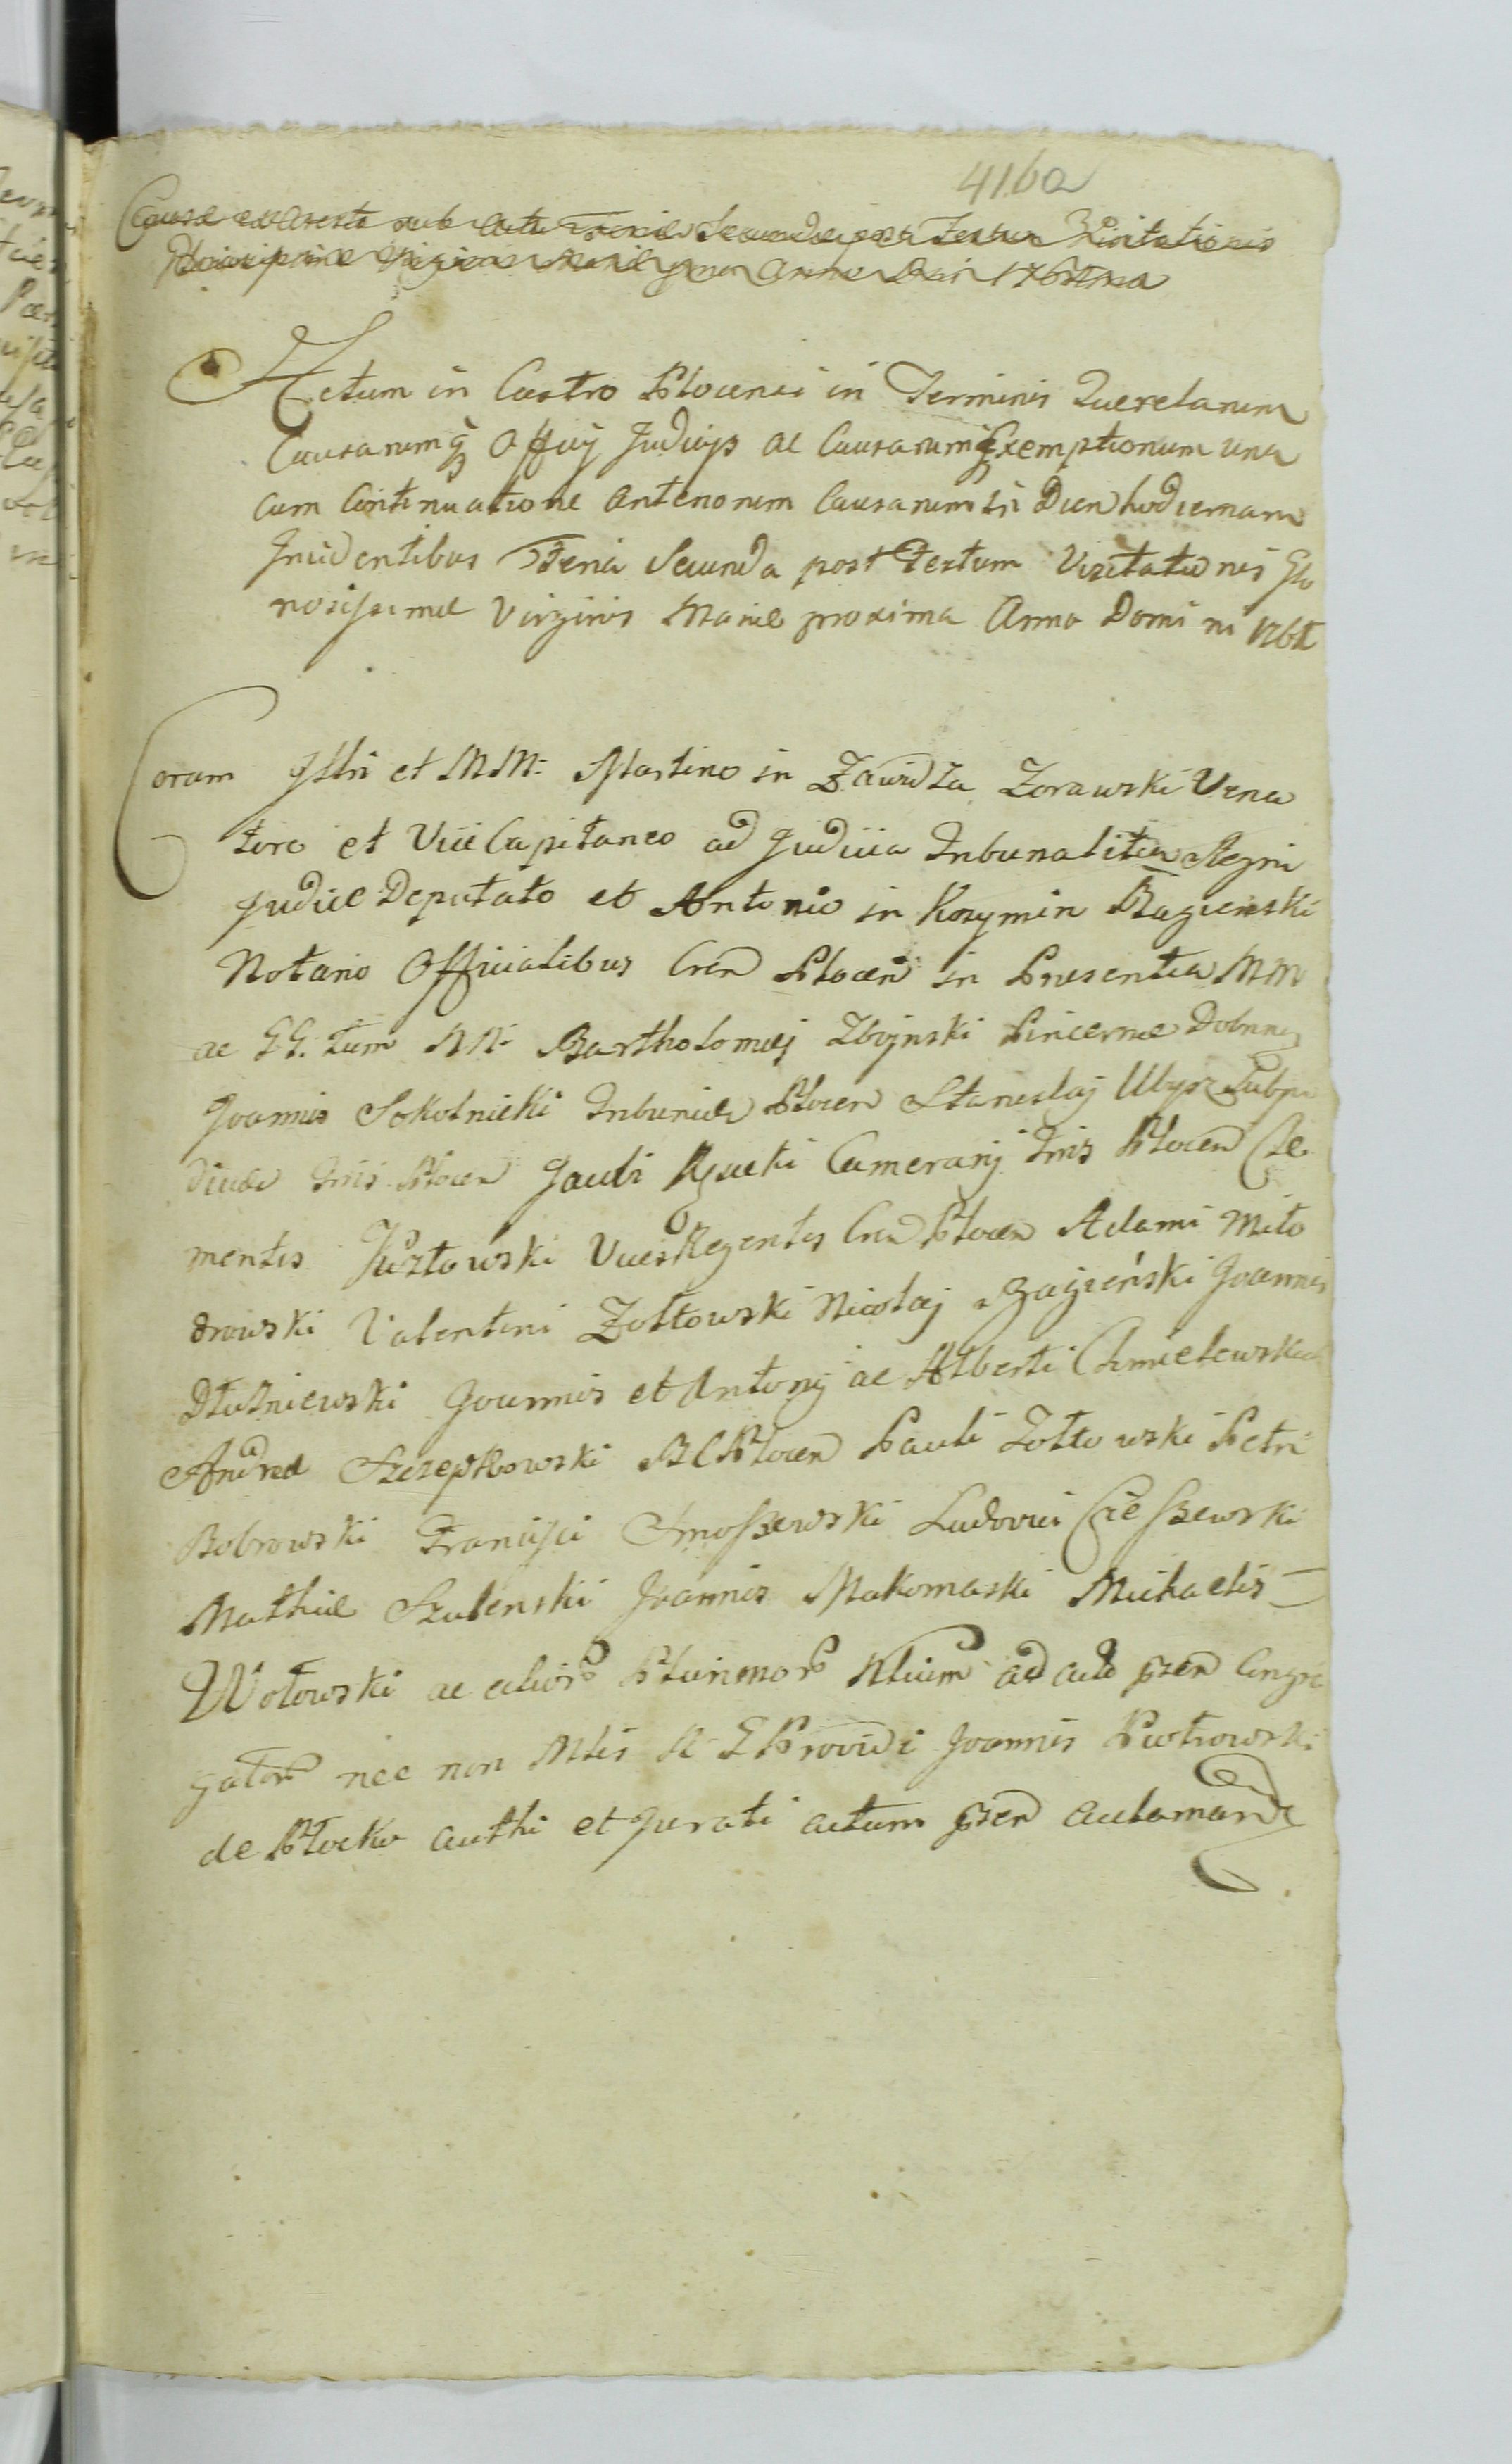 416a
Causae ex Aresto sub Actu Feriae Secundae post Festum Visitationis
Gloriosissimae Virginis Mariae Anno Dni
Actum in Castro Plocensi in Terminis Querelarum
Causarumq3 Officij Judicijs ac Causarum Exemptionum una
cum Continuatione Anteriorum Causarum in Diem hodiernam
Incidentibus Feria Secunda post Festum Visitationis Glo
riosissimae Virginis Mariae proxima Anno Domini
Coram Illri et MM: Martino in Zawidza Zorawski Vena
tore et ViceCapitaneo ad Judicia Tribunalitia Regni
Judice Deputato et Antonio in Kozymin Bagienski
Notario Officialibus Cren Plocen in Praesentia MM
ac GG. tum NN: Bartholomaej Zboynski Pincernae Dobrn
Joannis Sokolnicki Tribunidae Plocen Stanislaj Ubysz Subju
dicidae Tris Plocen Pauli Rzucki Camerarij Tris Plocen Cle
mentis Juzłowski ViceRegentis Cren Plocen Adami Miło
drowski Valentini Zołtowski Nicolaj Bagieński Joannis
Dłużniewski Joannis et Antonij ac Alberti Chmielewskich
Andreae Szczepkowski BCPlocen Pauli Zołtowski Petri
Bobrowski Francisci Smoszewski Ludovici Cieszewski
Mathiae Szulenski Joannis Makomaski Michaelis
Wołowski ac alior Plurimor Nlium ad acta pzen Congre
gator nec non Mtis R G Providi Joannis Piotrowski
de Płocko authi et Jurati actum pzen aclamand